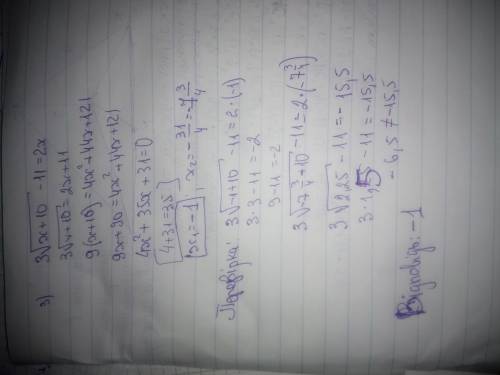 3) 3√x+10 - 11 = 2x
3√x+10 = 2x+11
9(x+10) = 4x²+44x+121
9x+90 = 4x²+44x+121
4x²+35x+31=0
4+31=35
x₁=-1, x₂=-31/4=-7 3/4
Перевірка: 3√-1+10 - 11 = 2·(-1)
3·3-11=-2
9-11=-2
3√-7 3/4+10 - 11 = 2·(-7 3/4)
3√2,25 - 11 = -15,5
3·1,5 - 11 = -15,5
-6,5 ≠ -15,5
Відповідь: -1